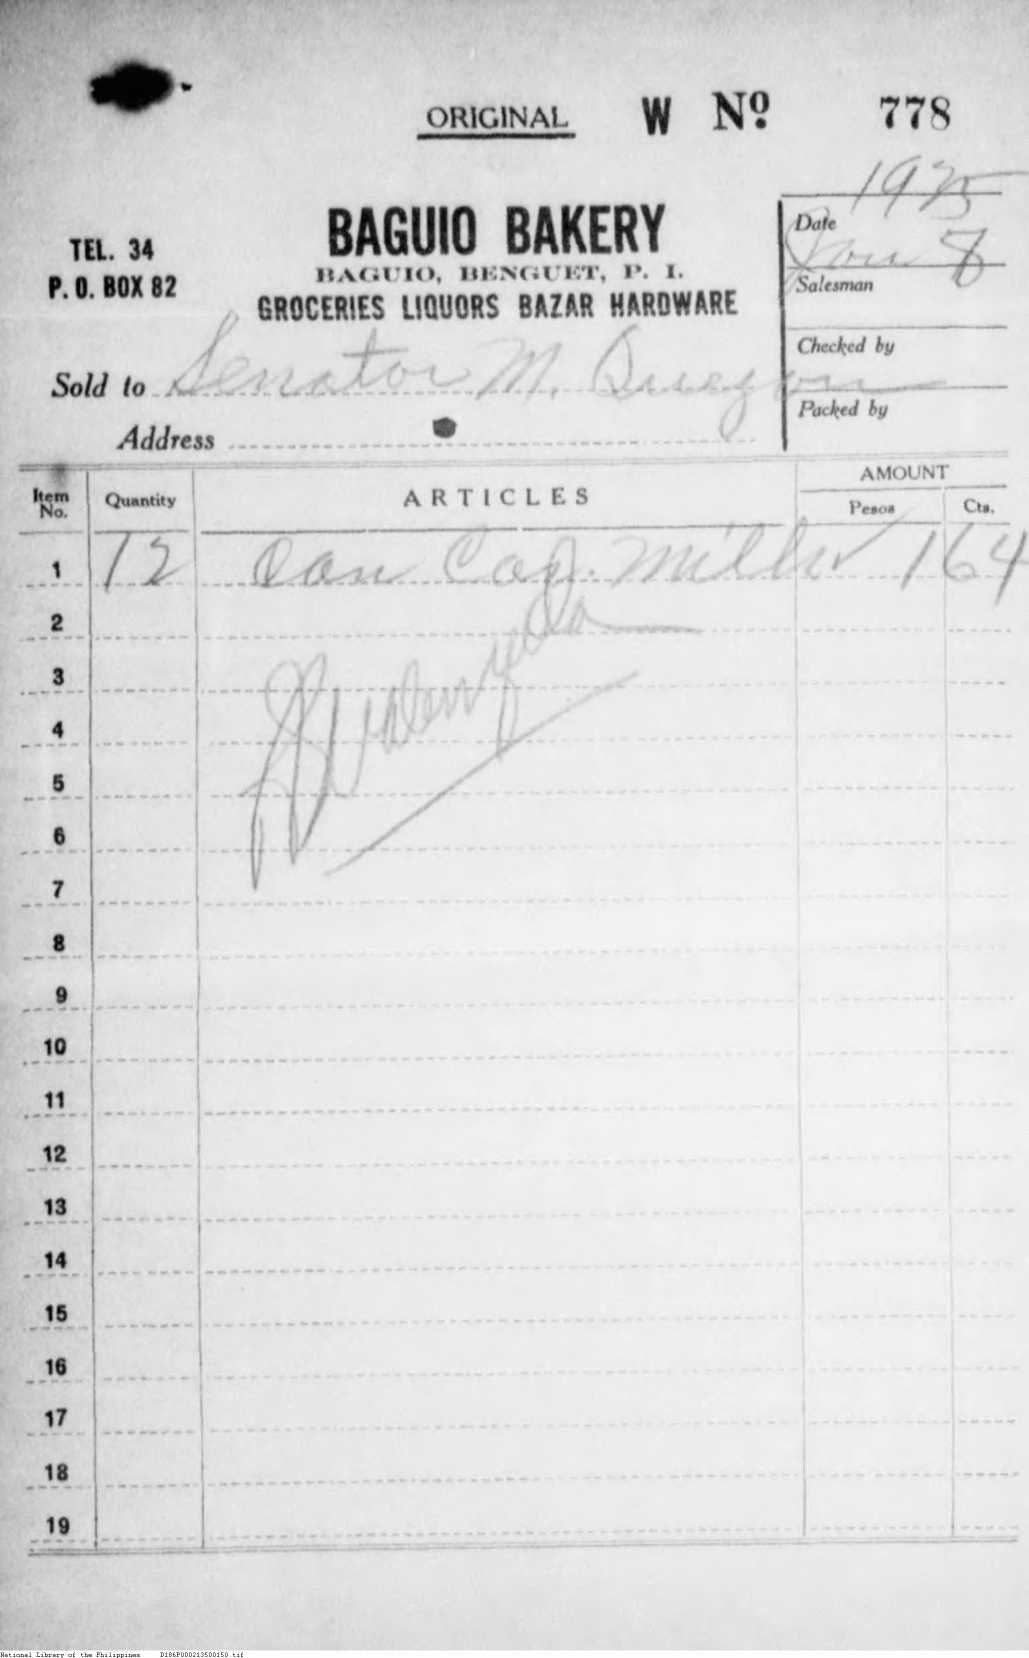 ORIGINAL W Nº 778
1925
TEL. 34
P. O. BOX 82
BAGUIO BAKERY
BAGUIO, BENGUET, P. I.
GROCERIES LIQUORS BAZAR HARDWARE
Date Jan 8
Salesman
Checked by
Packed by
Sold to Senator M. Quezon
Address
Item No. Quantity ARTICLES AMOUNT
Pesos Cts.
1 12 Can Cap. Milk 1 64
2
3
4
5
6
7
8
9
10
11
12
13
14
15
16
17
18
19
National Library of the Philippines D186P000213500150.tif